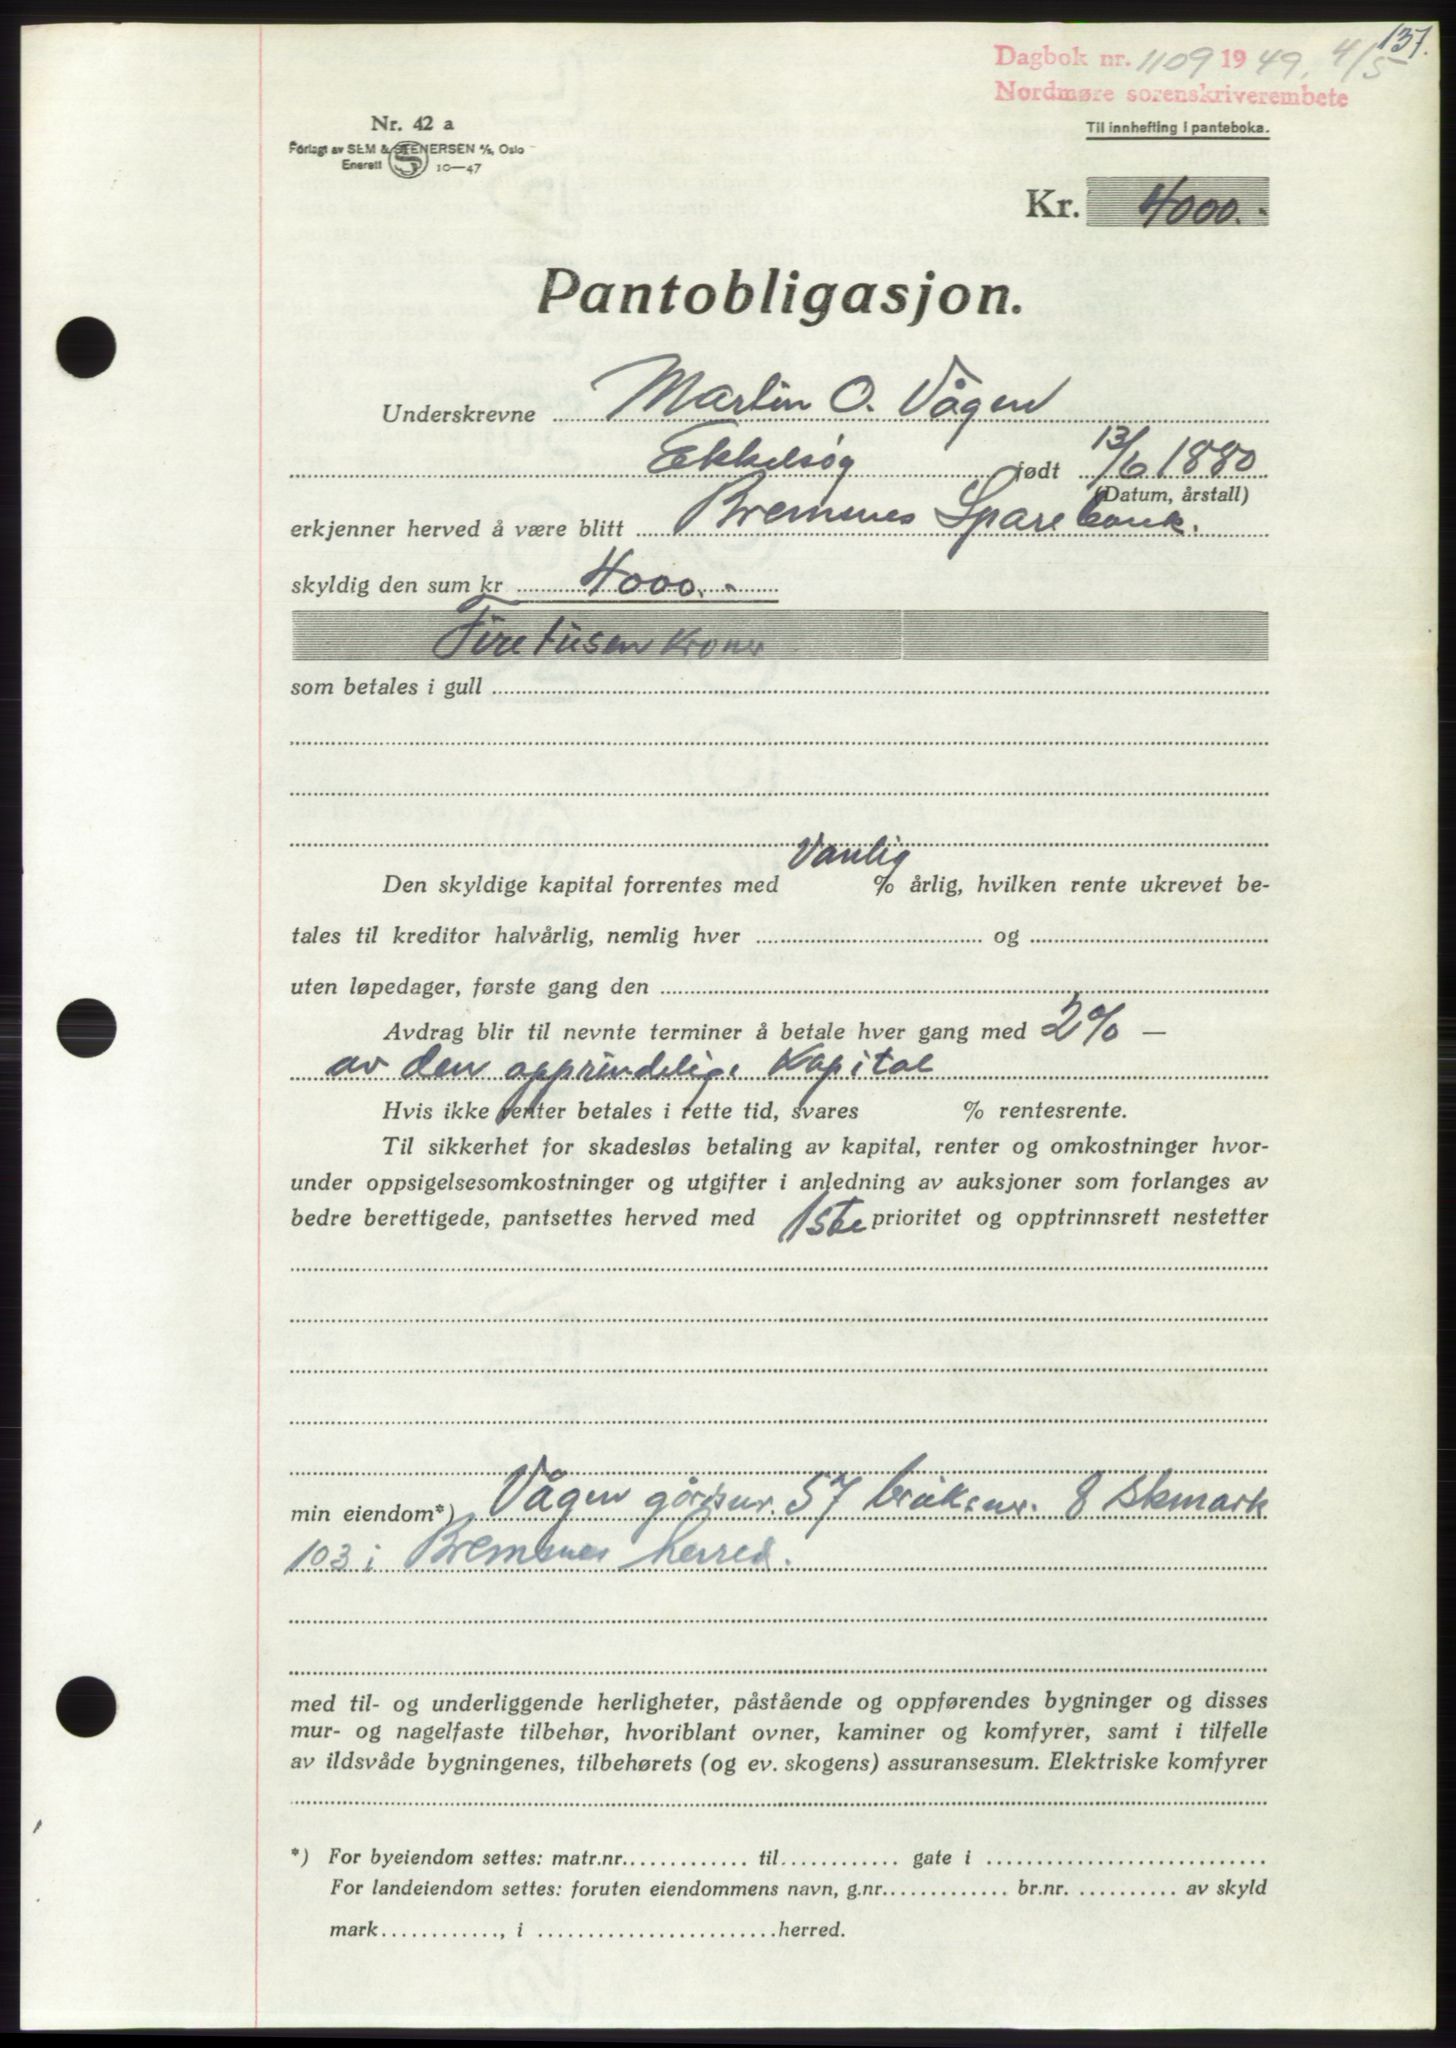 137.
Dagbok nr. 1109 1949. 4/5
Nordmøre sorenskriverembete
Nr. 42 a
Til innhefting i panteboka.
Forlagt av SEM & STENERSEN A/S, Oslo
Enerett S 10—47
Kr. 4000.-
Pantobligasjon.
Underskrevne Martin O. Vågen
Ekkelsøy født 13/6 1880
(Datum, årstall)
erkjenner herved å være blitt Bremsnes Sparebank.
skyldig den sum kr 4000.-
Firetusen kroner
som betales i gull
Den skyldige kapital forrentes med Vanlig % årlig, hvilken rente ukrevet be-
tales til kreditor halvårlig, nemlig hver og
uten løpedager, første gang den
Avdrag blir til nevnte terminer å betale hver gang med 2% —
av den opprindelige Kapital
Hvis ikke renter betales i rette tid, svares % rentesrente.
Til sikkerhet for skadesløs betaling av kapital, renter og omkostninger hvor-
under oppsigelsesomkostninger og utgifter i anledning av auksjoner som forlanges av
bedre berettigede, pantsettes herved med 1ste prioritet og opptrinnsrett nestetter
min eiendom*) Vågen gårdsnr. 57 bruksnr. 8 skmark
103 i Bremsnes herred.
med til- og underliggende herligheter, påstående og oppførendes bygninger og disses
mur- og nagelfaste tilbehør, hvoriblant ovner, kaminer og komfyrer, samt i tilfelle
av ildsvåde bygningenes, tilbehørets (og ev. skogens) assuransesum. Elektriske komfyrer
*) For byeiendom settes: matr.nr. til gate i
For landeiendom settes: foruten eiendommens navn, g.nr. br.nr. av skyld
mark, i herred.